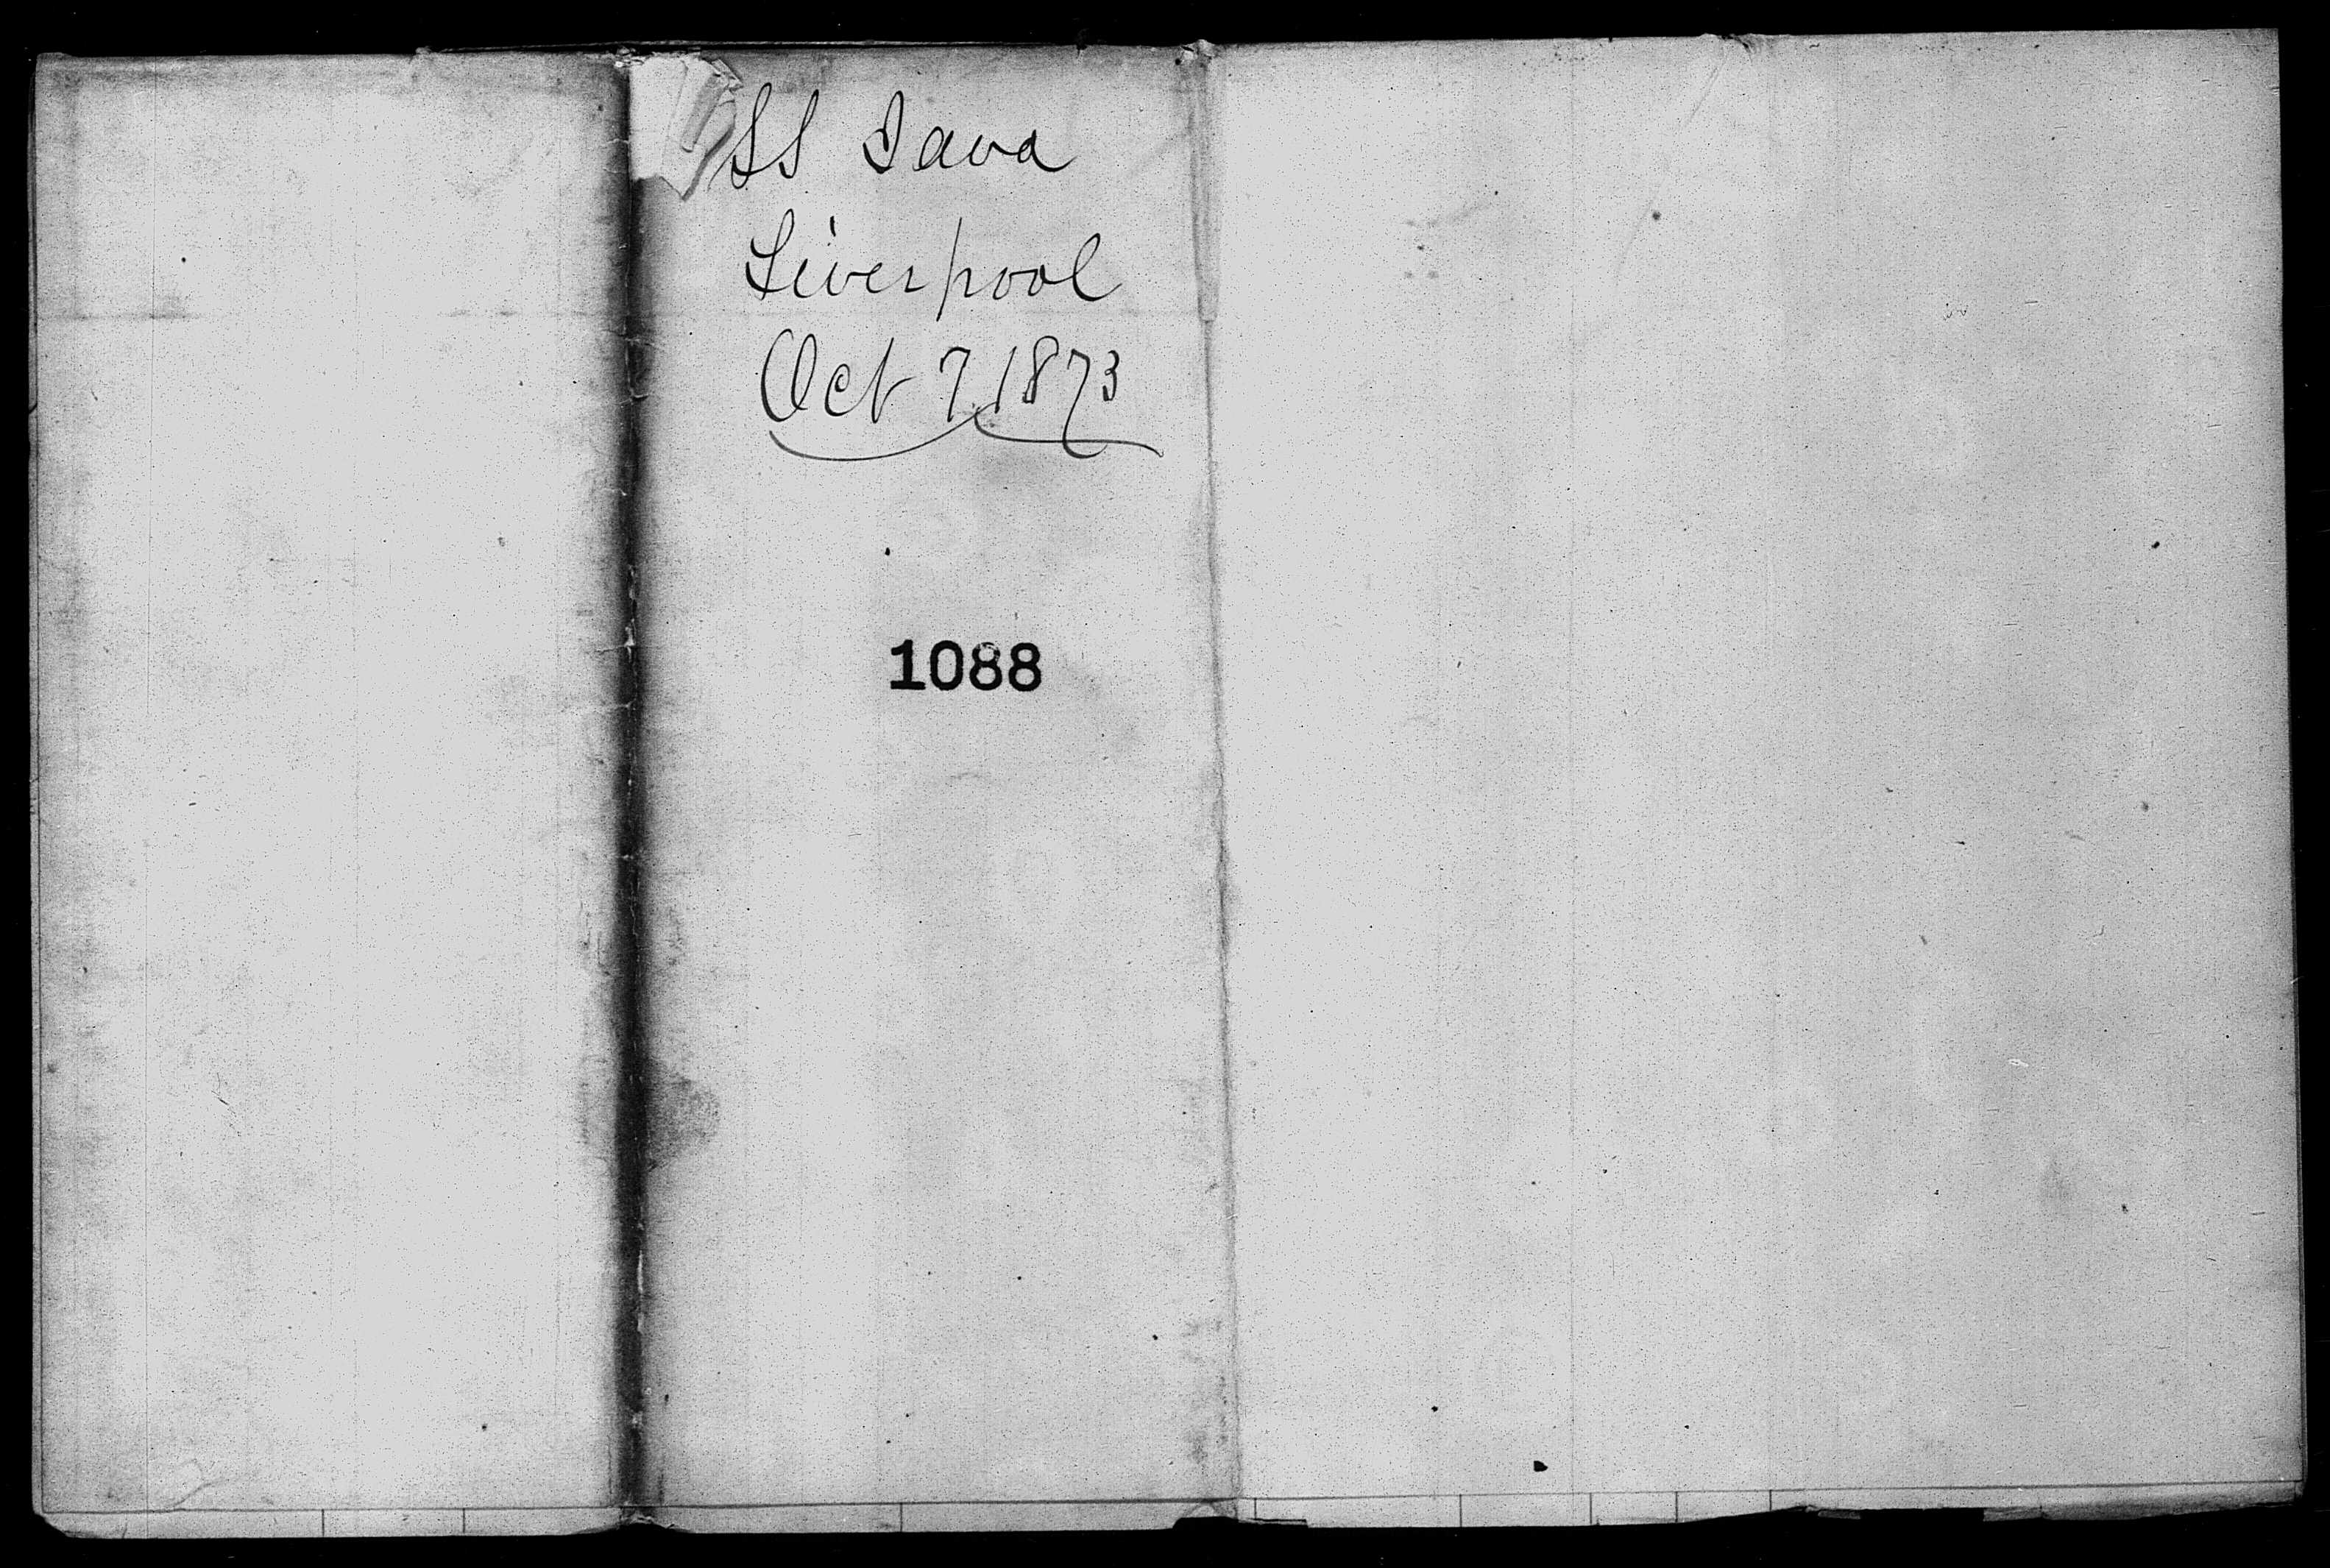 SS Java
Liverpool
Oct 7 1873
1088